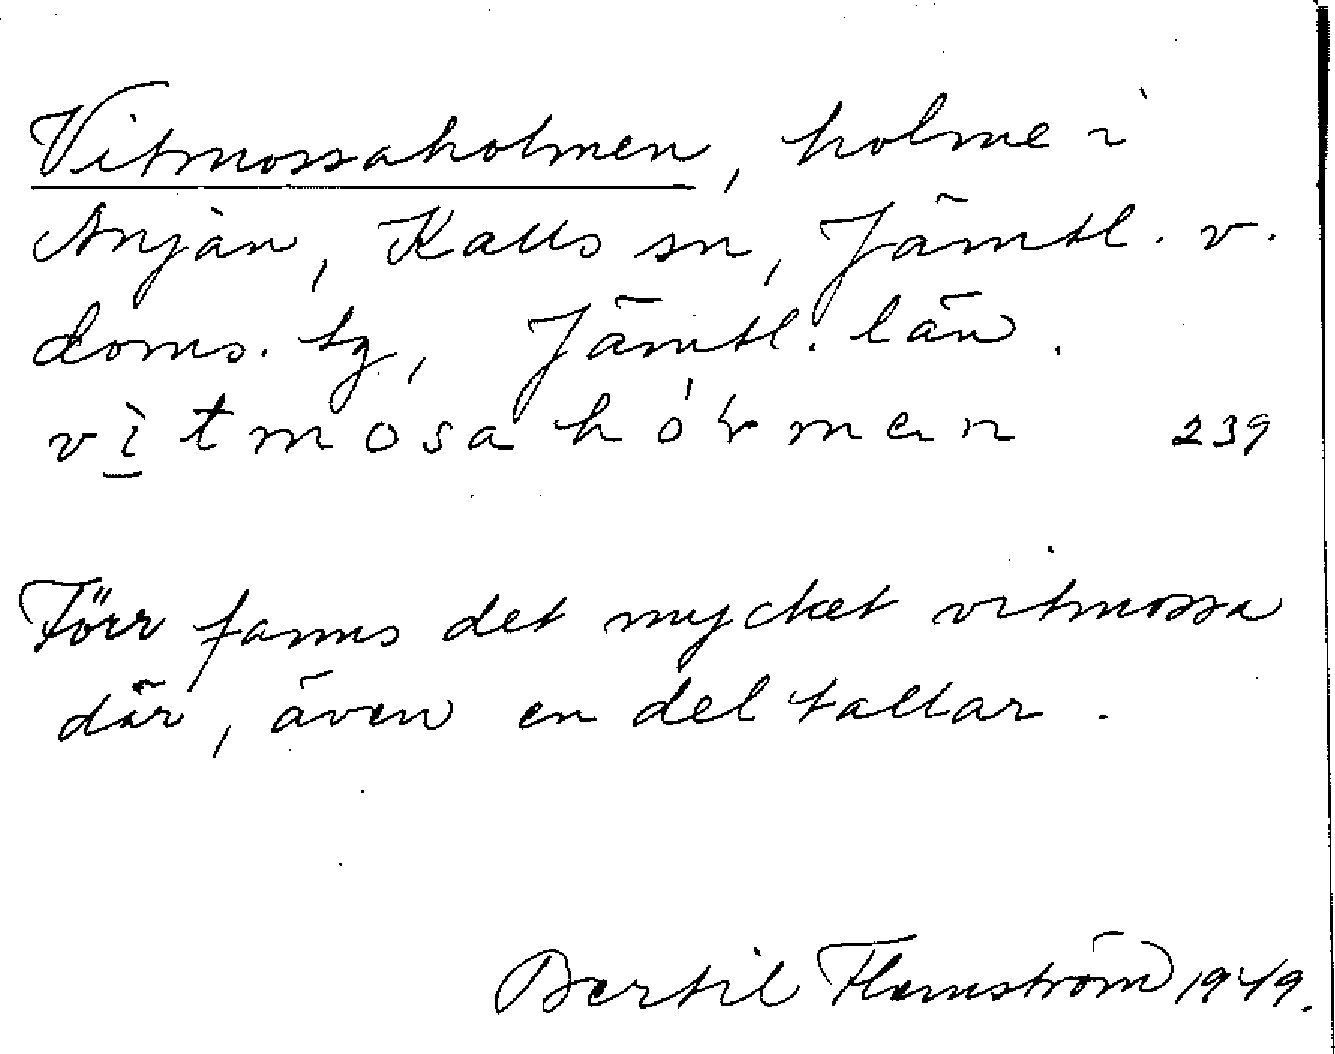 Vitmossaholmen, holme i
Anjan, Kalls sn, Jämtl. v.
doms. tg, Jämtl. län.
vìtmosahóꞎmen 239
Förr fanns det mycket vitmossa
där, även en del tallar.
Bertil Flemström 1949.